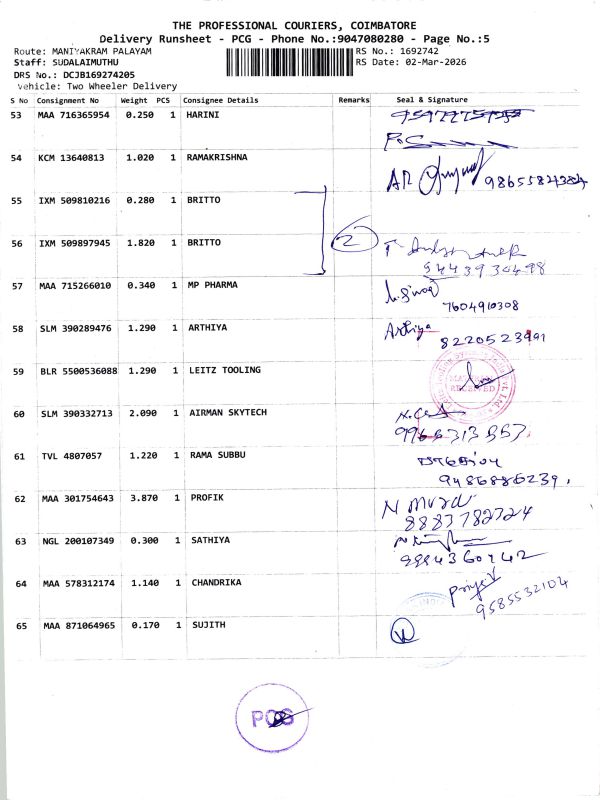 THE PROFESSIONAL COURIERS, COIMBATORE
Delivery Runsheet - PCG - Phone No.:9047080280 - Page No.:5
Route: MANIYAKRAM PALAYAM
RS No.: 1692742
Staff: SUDALAIMUTHU
RS Date: 02-Mar-2026
DRS No.: DCJB169274205
Vehicle: Two Wheeler Delivery
S No Consignment No Weight PCS Consignee Details Remarks Seal & Signature
53 MAA 716365954 0.250 1 HARINI
54 KCM 13640813 1.020 1 RAMAKRISHNA
55 IXM 509810216 0.280 1 BRITTO
56 IXM 509897945 1.820 1 BRITTO 2
57 MAA 715266010 0.340 1 MP PHARMA
7604910308
58 SLM 390289476 1.290 1 ARTHIYA Arthiya
8220523991
59 BLR 5500536088 1.290 1 LEITZ TOOLING
60 SLM 390332713 2.090 1 AIRMAN SKYTECH
61 TVL 4807057 1.220 1 RAMA SUBBU
9486886239.
62 MAA 301754643 3.870 1 PROFIK
8883782724
63 NGL 200107349 0.300 1 SATHIYA
9994360942
64 MAA 578312174 1.140 1 CHANDRIKA
9585532104
65 MAA 871064965 0.170 1 SUJITH
PCG